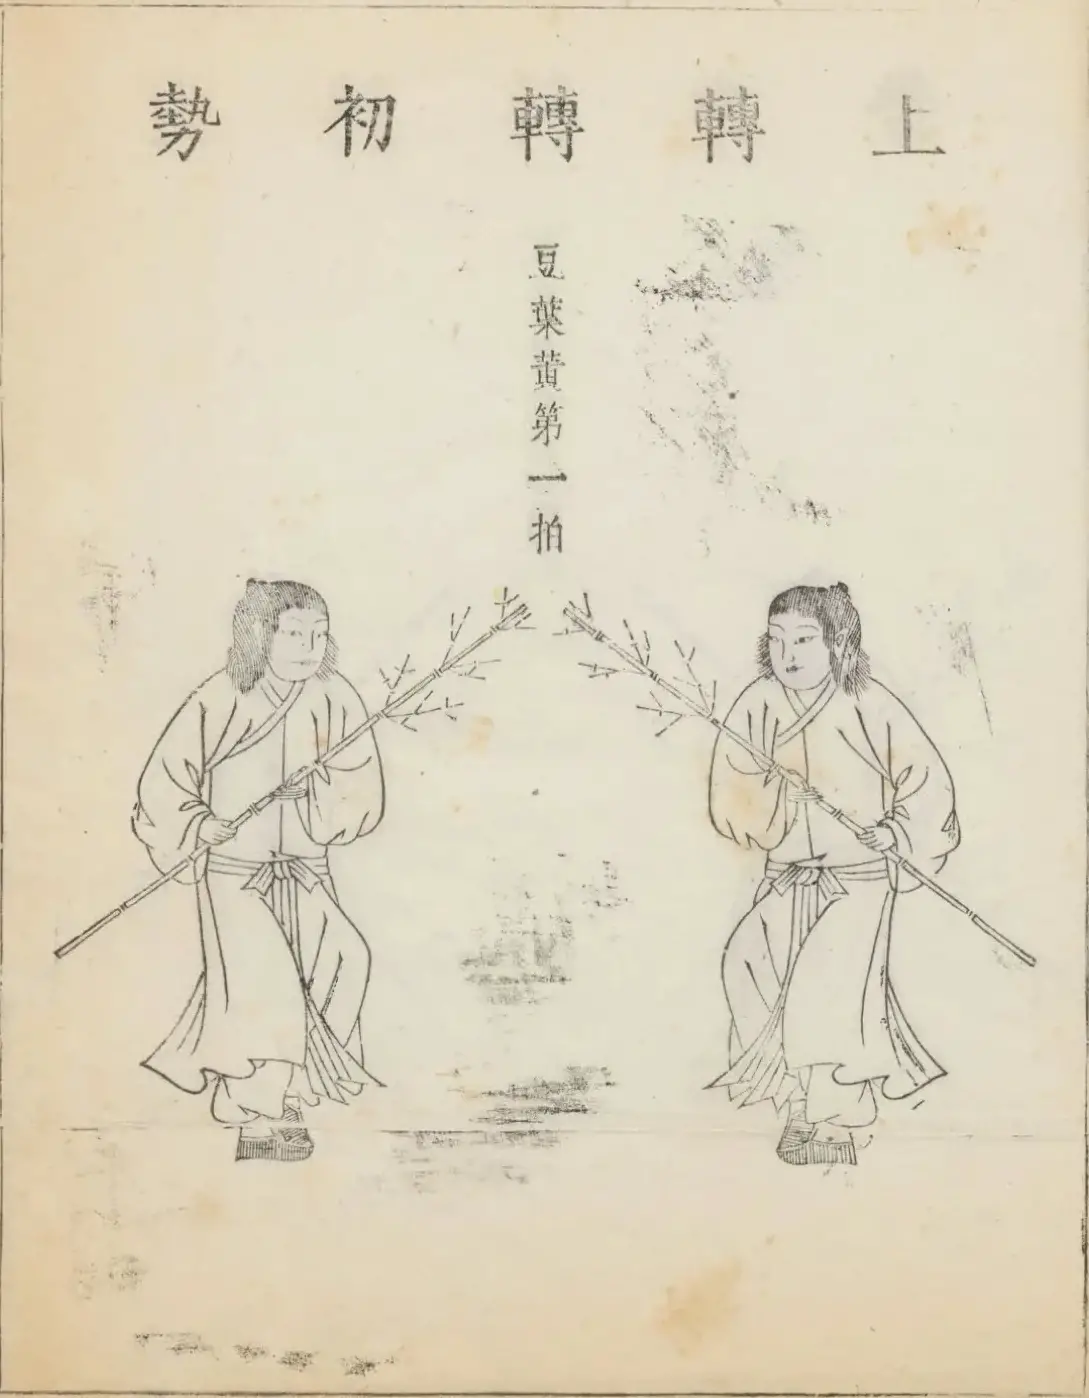 上轉轉初勢
豆葉黄第一拍